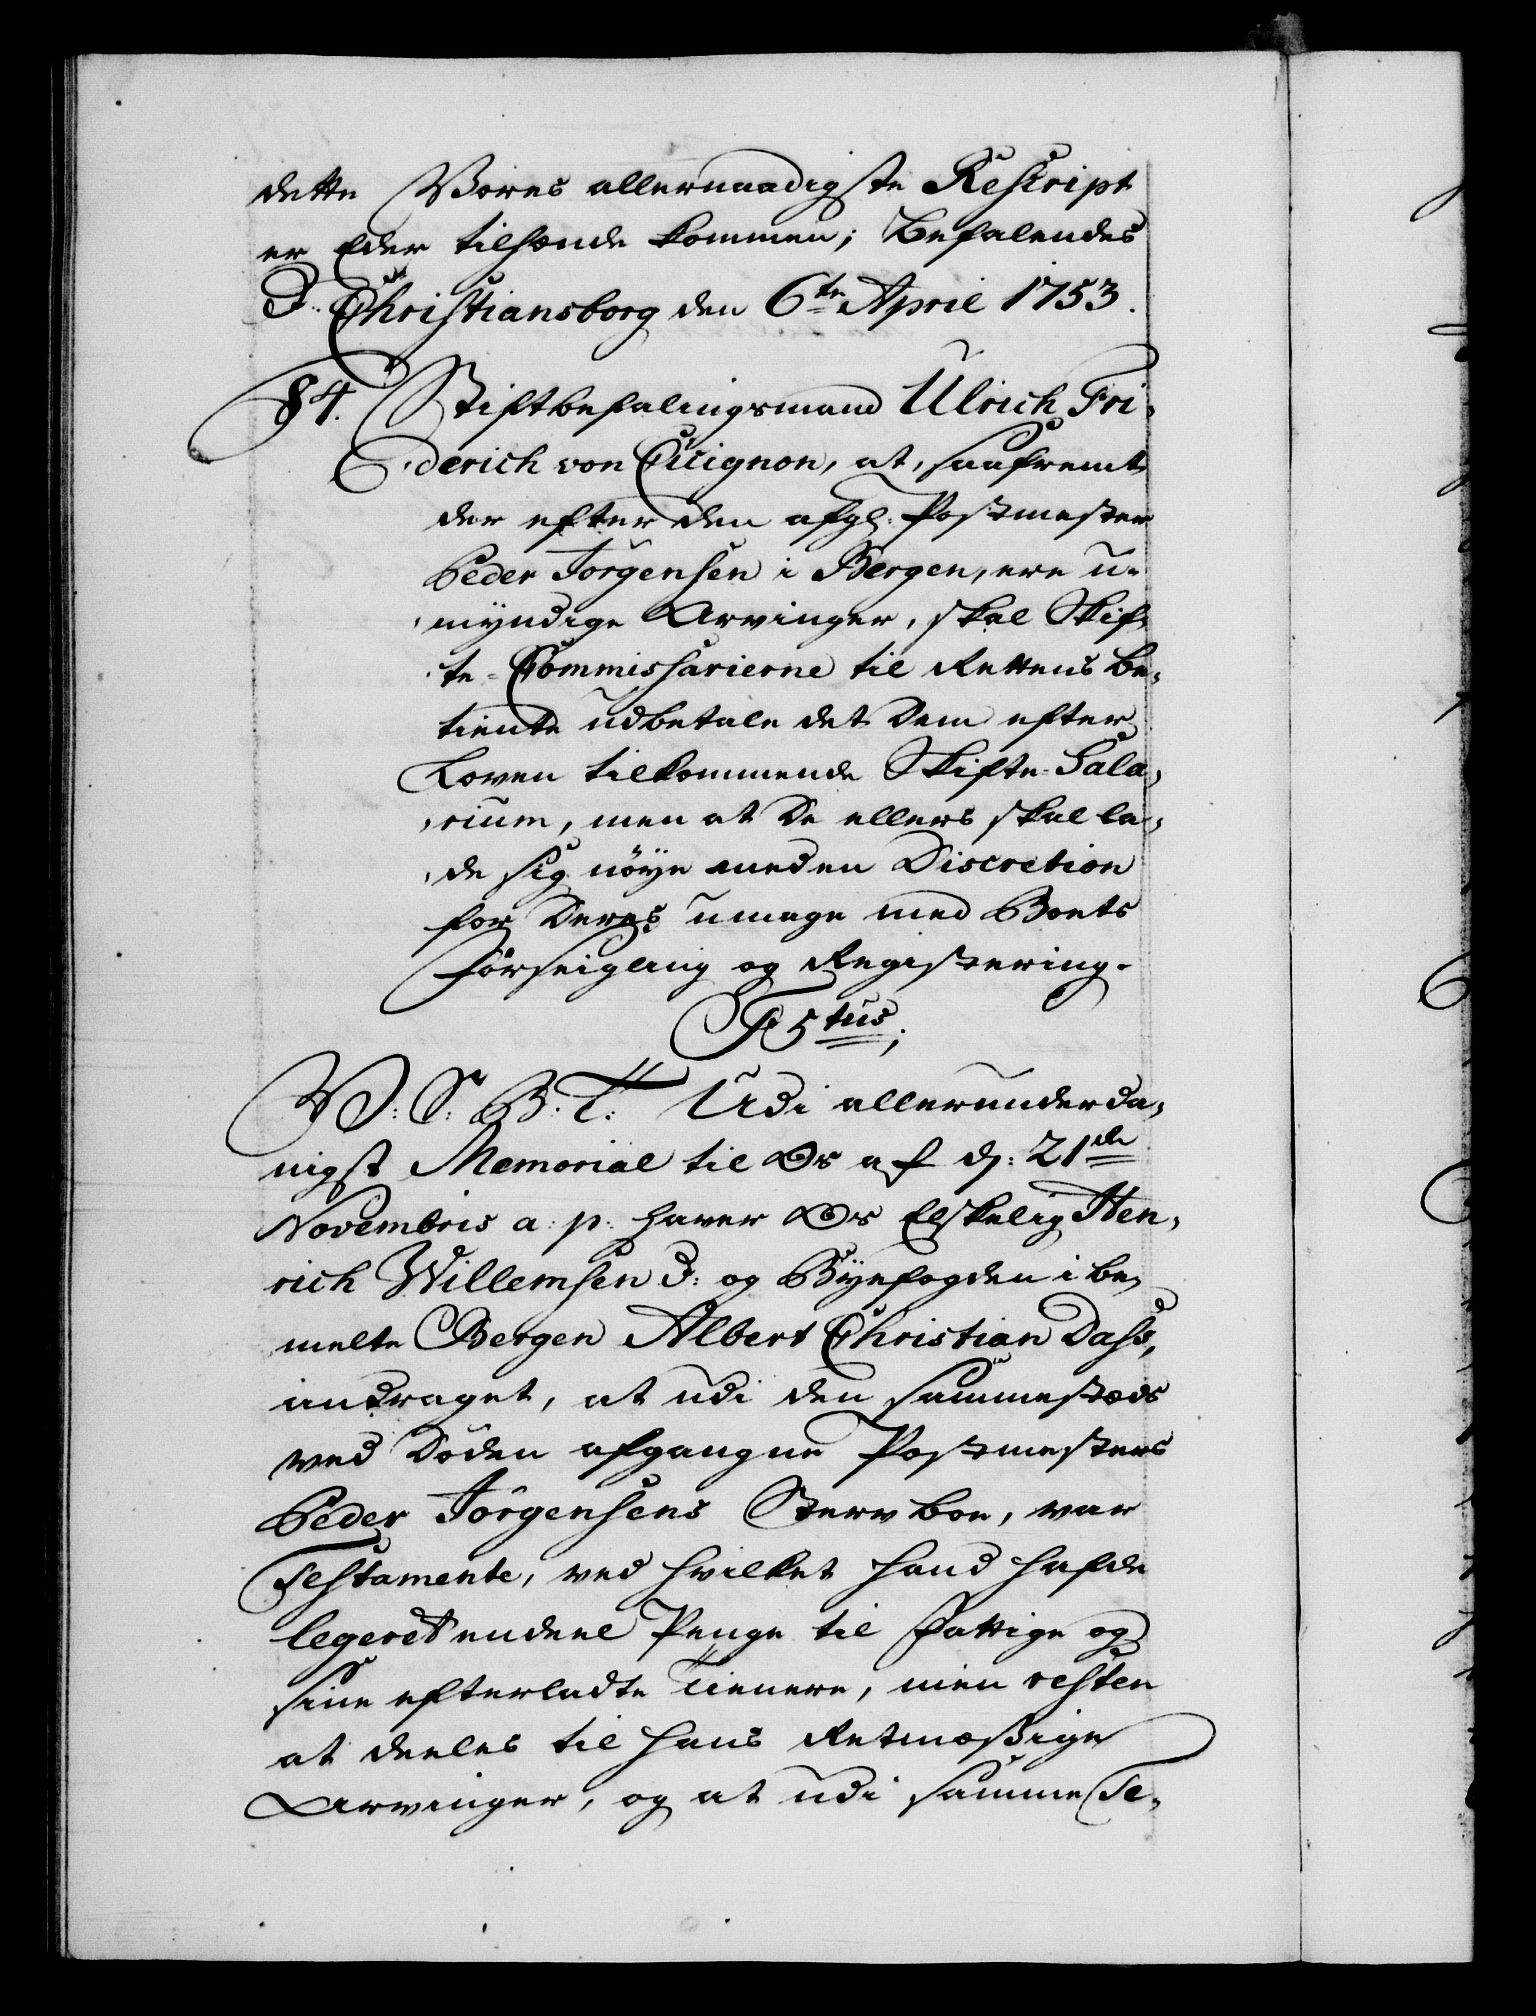 dette Vores allernaadigste Rescript
er Eder tilhænde kommen; Befalendes
d. Christiansborg den 6te April 1753.
84. Stiftbefalingsmand Ulrich Fri-
derich von Cicignon, at, saafremt
der efter den afg: Postmester
Peder Jörgensen i Bergen, ere u-
myndige Arvinger, skal Skif-
te-Commissarierne til Rettens Be-
tiente udbetale det Dem efter
Loven tilkommende Skifte-Sala-
rium, men at De ellers skal la-
de sig nöye med en Discretion
for Deres umage med Boets
Forseigling og Registering.
F 5tus;
V: S: B. T: Udi allerunderda-
nigst Memorial til Os af d: 21de
Novembris a: p: haver Os Elskelig Hen-
rich Willemsen d: og Byefogden i be-
melte Bergen Albert Christian Dass,
andraget, at udi den sammestæds
ved Döden afgangne Postmesters
Peder Jörgensens Sterv boe, var
Testamente, ved hvilket hand hafde
legeret endeel Penge til Fattige og
sine efterladte Tienere, men resten
at deeles til hans Retmæssige
Arvinger, og at udi samme Te-